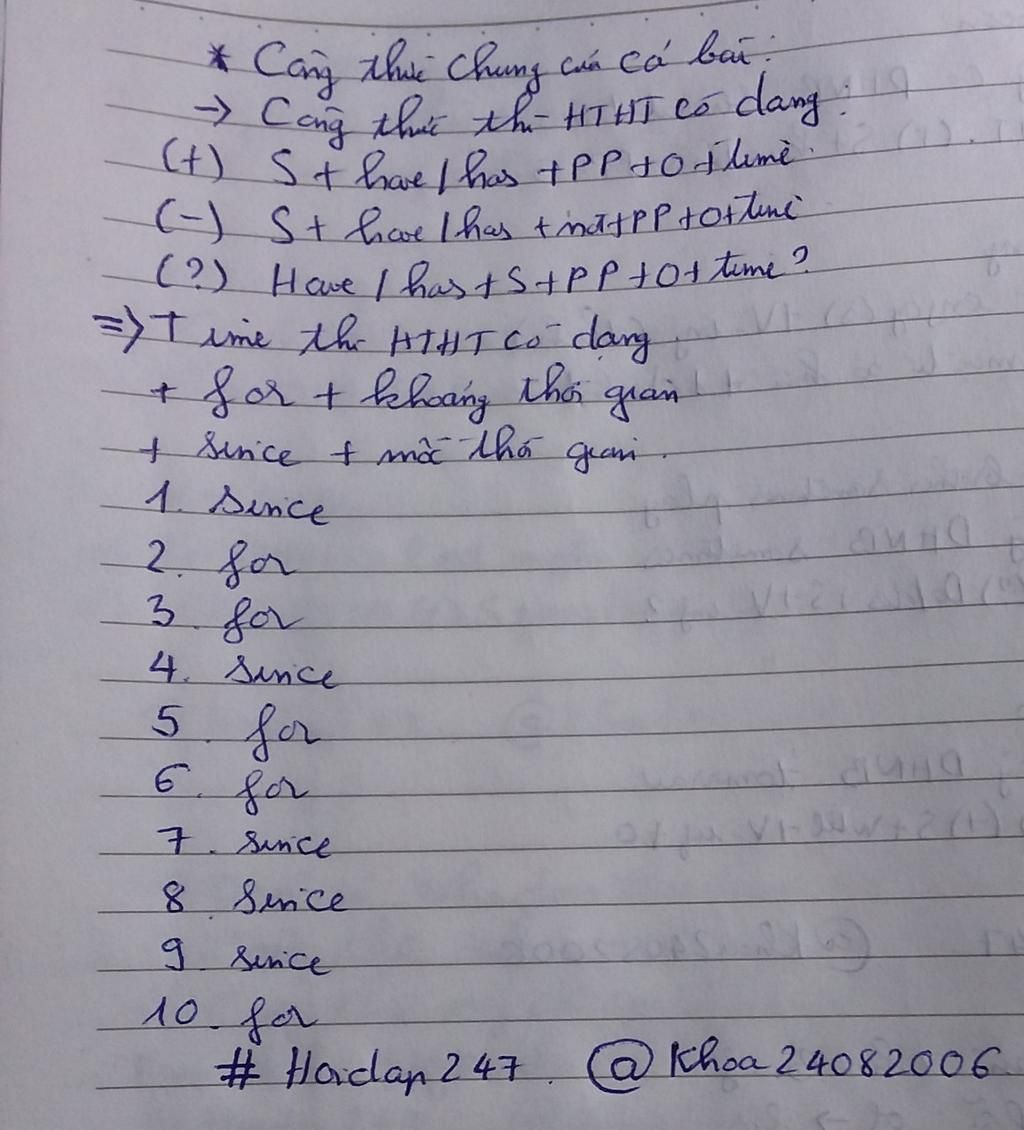 * Công thức chung của cả bài:
→ Công thức thì HTHT có dạng:
(+) S + have / has + PP + O + time.
(-) S + have / has + not + PP + O + time
(?) Have / has + S + PP + O + time?
=> Time thì HTHT có dạng
+ for + khoảng thời gian
+ since + mốc thời gian.
1. since
2. for
3. for
4. since
5. for
6. for
7. since
8. since
9. since
10. for
# Hoidap247. @Khoa24082006